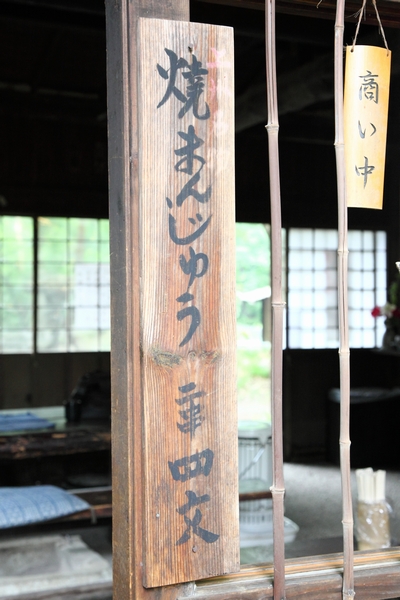 焼まんじゅう
一串四文
商い中